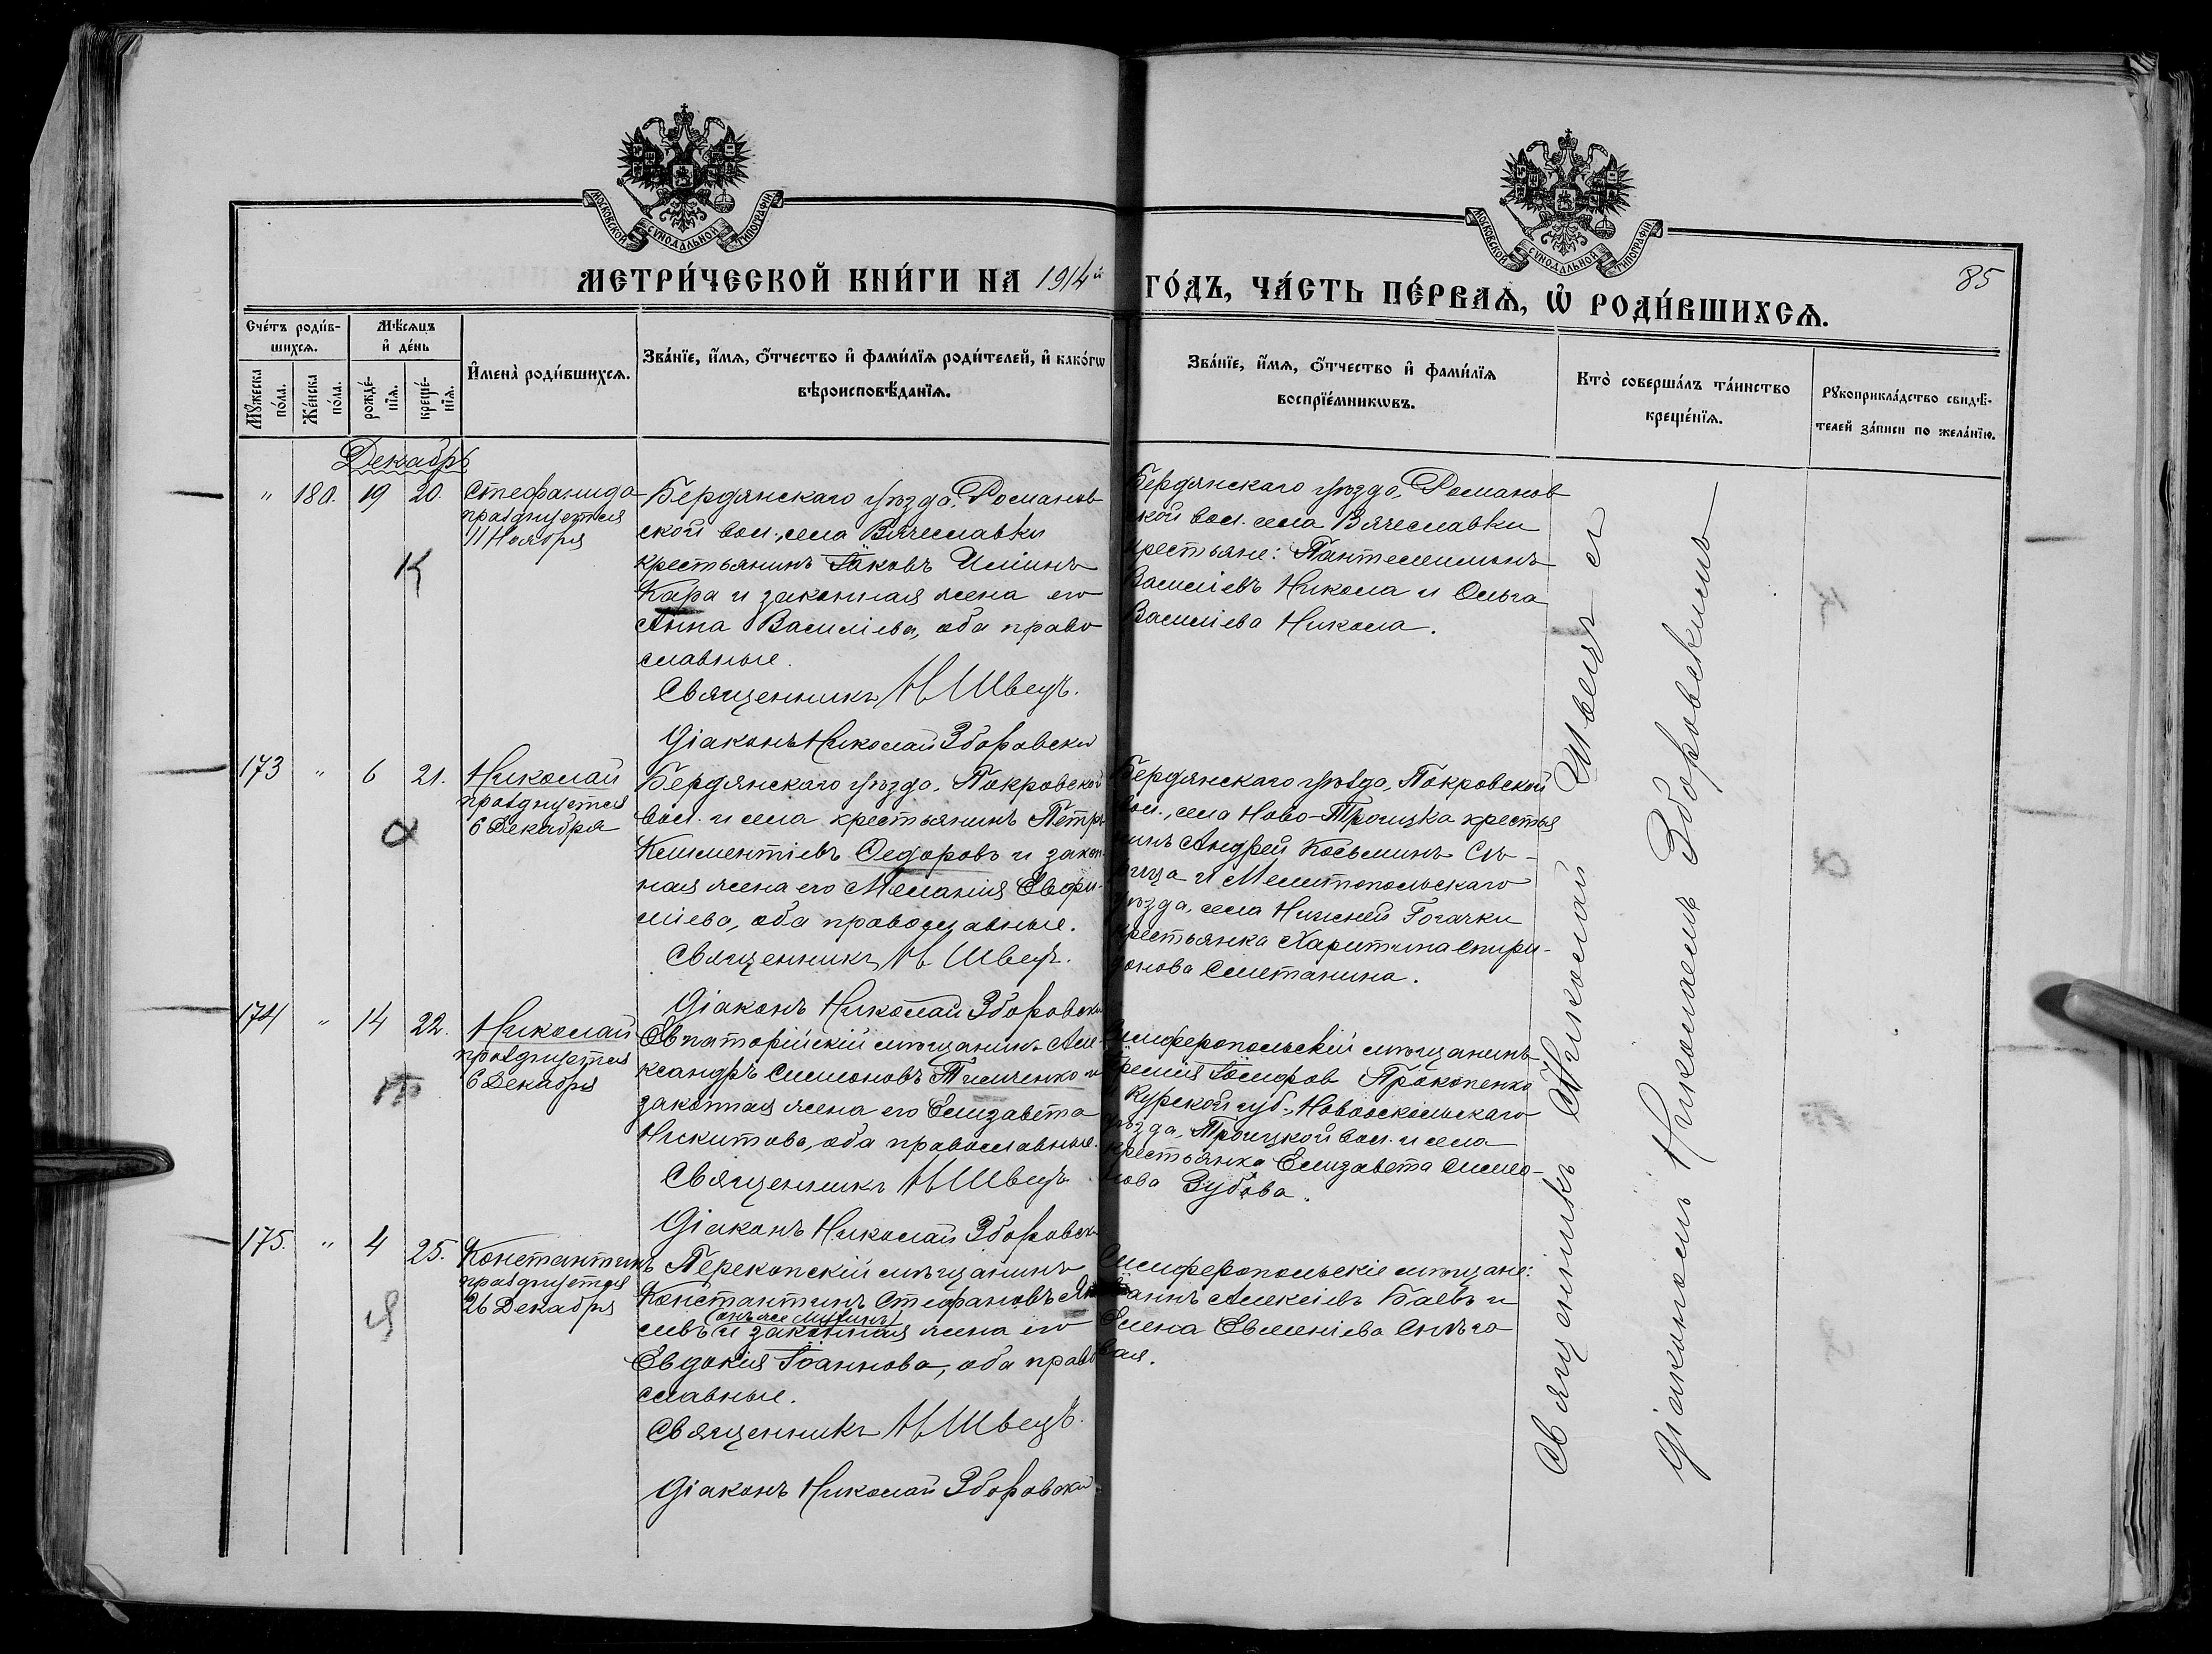 МОСКОВСКОЙ СѴНОДАЛЬНОЙ ТИПОГРАФІИ
МОСКОВСКОЙ СѴНОДАЛЬНОЙ ТИПОГРАФІИ
85
МЕТРИ́ЧЕСКОЙ КНИ́ГИ НА 1914й ГО́ДЪ, ЧА́СТЬ ПЕ́РВАѦ, Ѡ҆ РОДИ́ВШИХСѦ.
Сче́тъ роди́в-
шихсѧ.
Мꙋ́жеска
по́ла.
Же́нска
по́ла.
Мѣ́сѧцъ
и҆ де́нь
рожде́-
нїѧ.
креще́-
нїѧ.
И҆мена̀ роди́вшихсѧ.
Зва́нїе, и҆́мѧ, ѻ҆́тчество и҆ фами́лїѧ роди́телей, и҆ како́гѡ
вѣроисповѣ́данїѧ.
Зва́нїе, и҆́мѧ, ѻ҆́тчество и҆ фами́лїѧ
воспрїе́мникѡвъ.
Кто̀ соверша́лъ та́инство
креще́нїѧ.
Рꙋкоприкла́дство свидѣ́-
телей за́писи по жела́нїю.
Декабрь
" 180. 19 20.
Стефанида
празднуется
11 Ноября
К
Бердянскаго уѣзда, Романов
ской вол., села Вячеславки
крестьянинъ Іаковъ Иліинъ
Кара и законная жена его
Анна Василіева, оба право
славные.
Священникъ Н Швецъ.
Діаконъ Николай Зборовскій
Бердянскаго уѣзда, Романов
ской вол. села Вячеславки
крестьяне: Пантелеимонъ
Василіевъ Никола и Ольга
Василіева Никола.
173 " 6 21.
Николай
празднуется
6 Декабря
Бердянскаго уѣзда, Покровской
вол. и села крестьянинъ Петръ
Климентіевъ Ѳедоровъ и закон
ная жена его Меланія Евфи-
міева, оба православные.
Священникъ Н Швецъ.
Діаконъ Николай Зборовскій
Бердянскаго уѣзда, Покровской
вол., села Ново-Троицка крестья
нинъ Андрей Косьминъ
и Мелитопольскаго
уѣзда, села Нижней Гогачки
крестьянка Харитина Спири-
донова Сметанина.
174 " 14 22.
Николай
празднуется
6 Декабря
Евпаторійскій мѣщанинъ Але-
ксандръ Симоновъ Тимченко и
законная жена его Елизавета
Никитова, оба православные.
Священникъ Н Швецъ
Діаконъ Николай Зборовскій
Симферопольскій мѣщанинъ
Іосифов Прокопенко
Курской губ., Новооскольскаго
уѣзда, Троицкой вол. и села
крестьянка Елизавета Симео-
нова Зубова.
175. " 4 25.
Константинъ
празднуется
26 Декабря
Я
Перекопскій мѣщанинъ
Константинъ Стефановъ
и законная жена его
Евдокія Іоаннова, оба право
славные.
Священникъ Н Швецъ.
Діаконъ Николай Зборовскій
Симферопольскіе мѣщане:
Іоаннъ Алексіевъ Баевъ и
Елена Евменіева Снѣго
вая.
Священникъ Николай Швецъ съ
Діакономъ Николаемъ Зборовскимъ